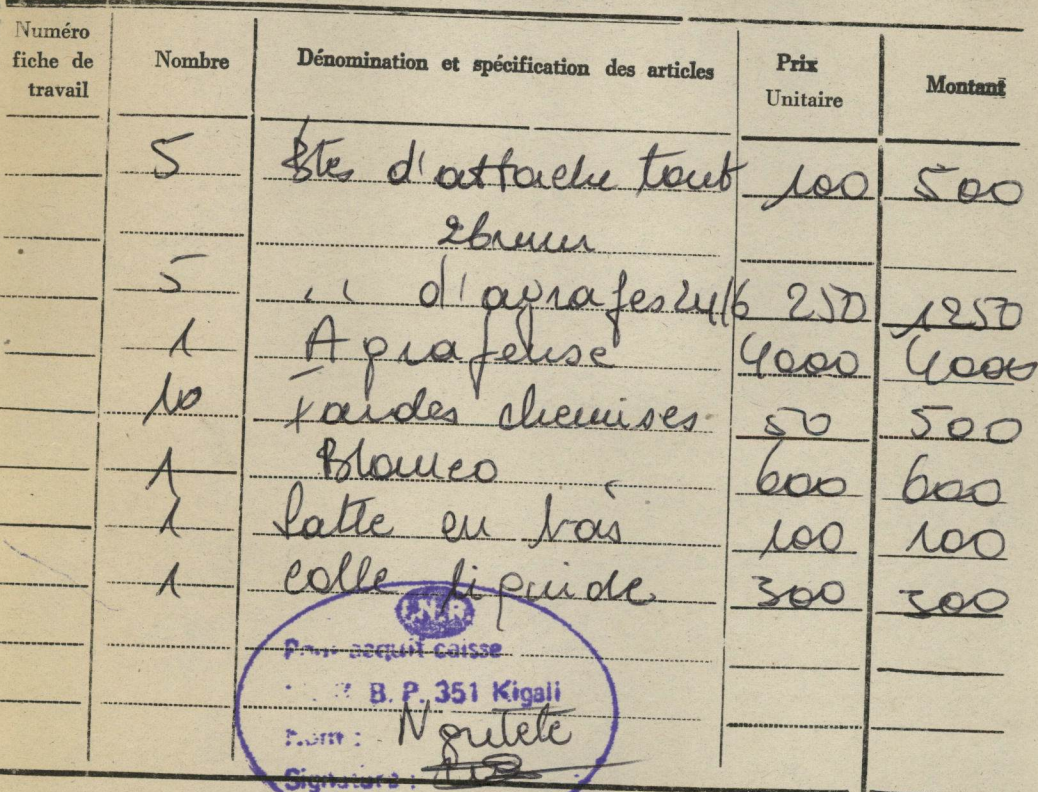 Numéro fiche de travail | Nombre | Dénomination et spécification des articles | Prix Unitaire | Montant
5 | Btes d'attache tout | 100 | 500
26mm
5 | ,, d'agrafes 24/6 | 250 | 1250
1 | Agrafeuse | 4000 | 4000
10 | fardes chemises | 50 | 500
1 | Blanco | 600 | 600
1 | latte en bois | 100 | 100
1 | colle liquide | 300 | 300
I.N.R.
Pour acquit caisse
B.P. 351 Kigali
Nom : Ngutete
Signature :